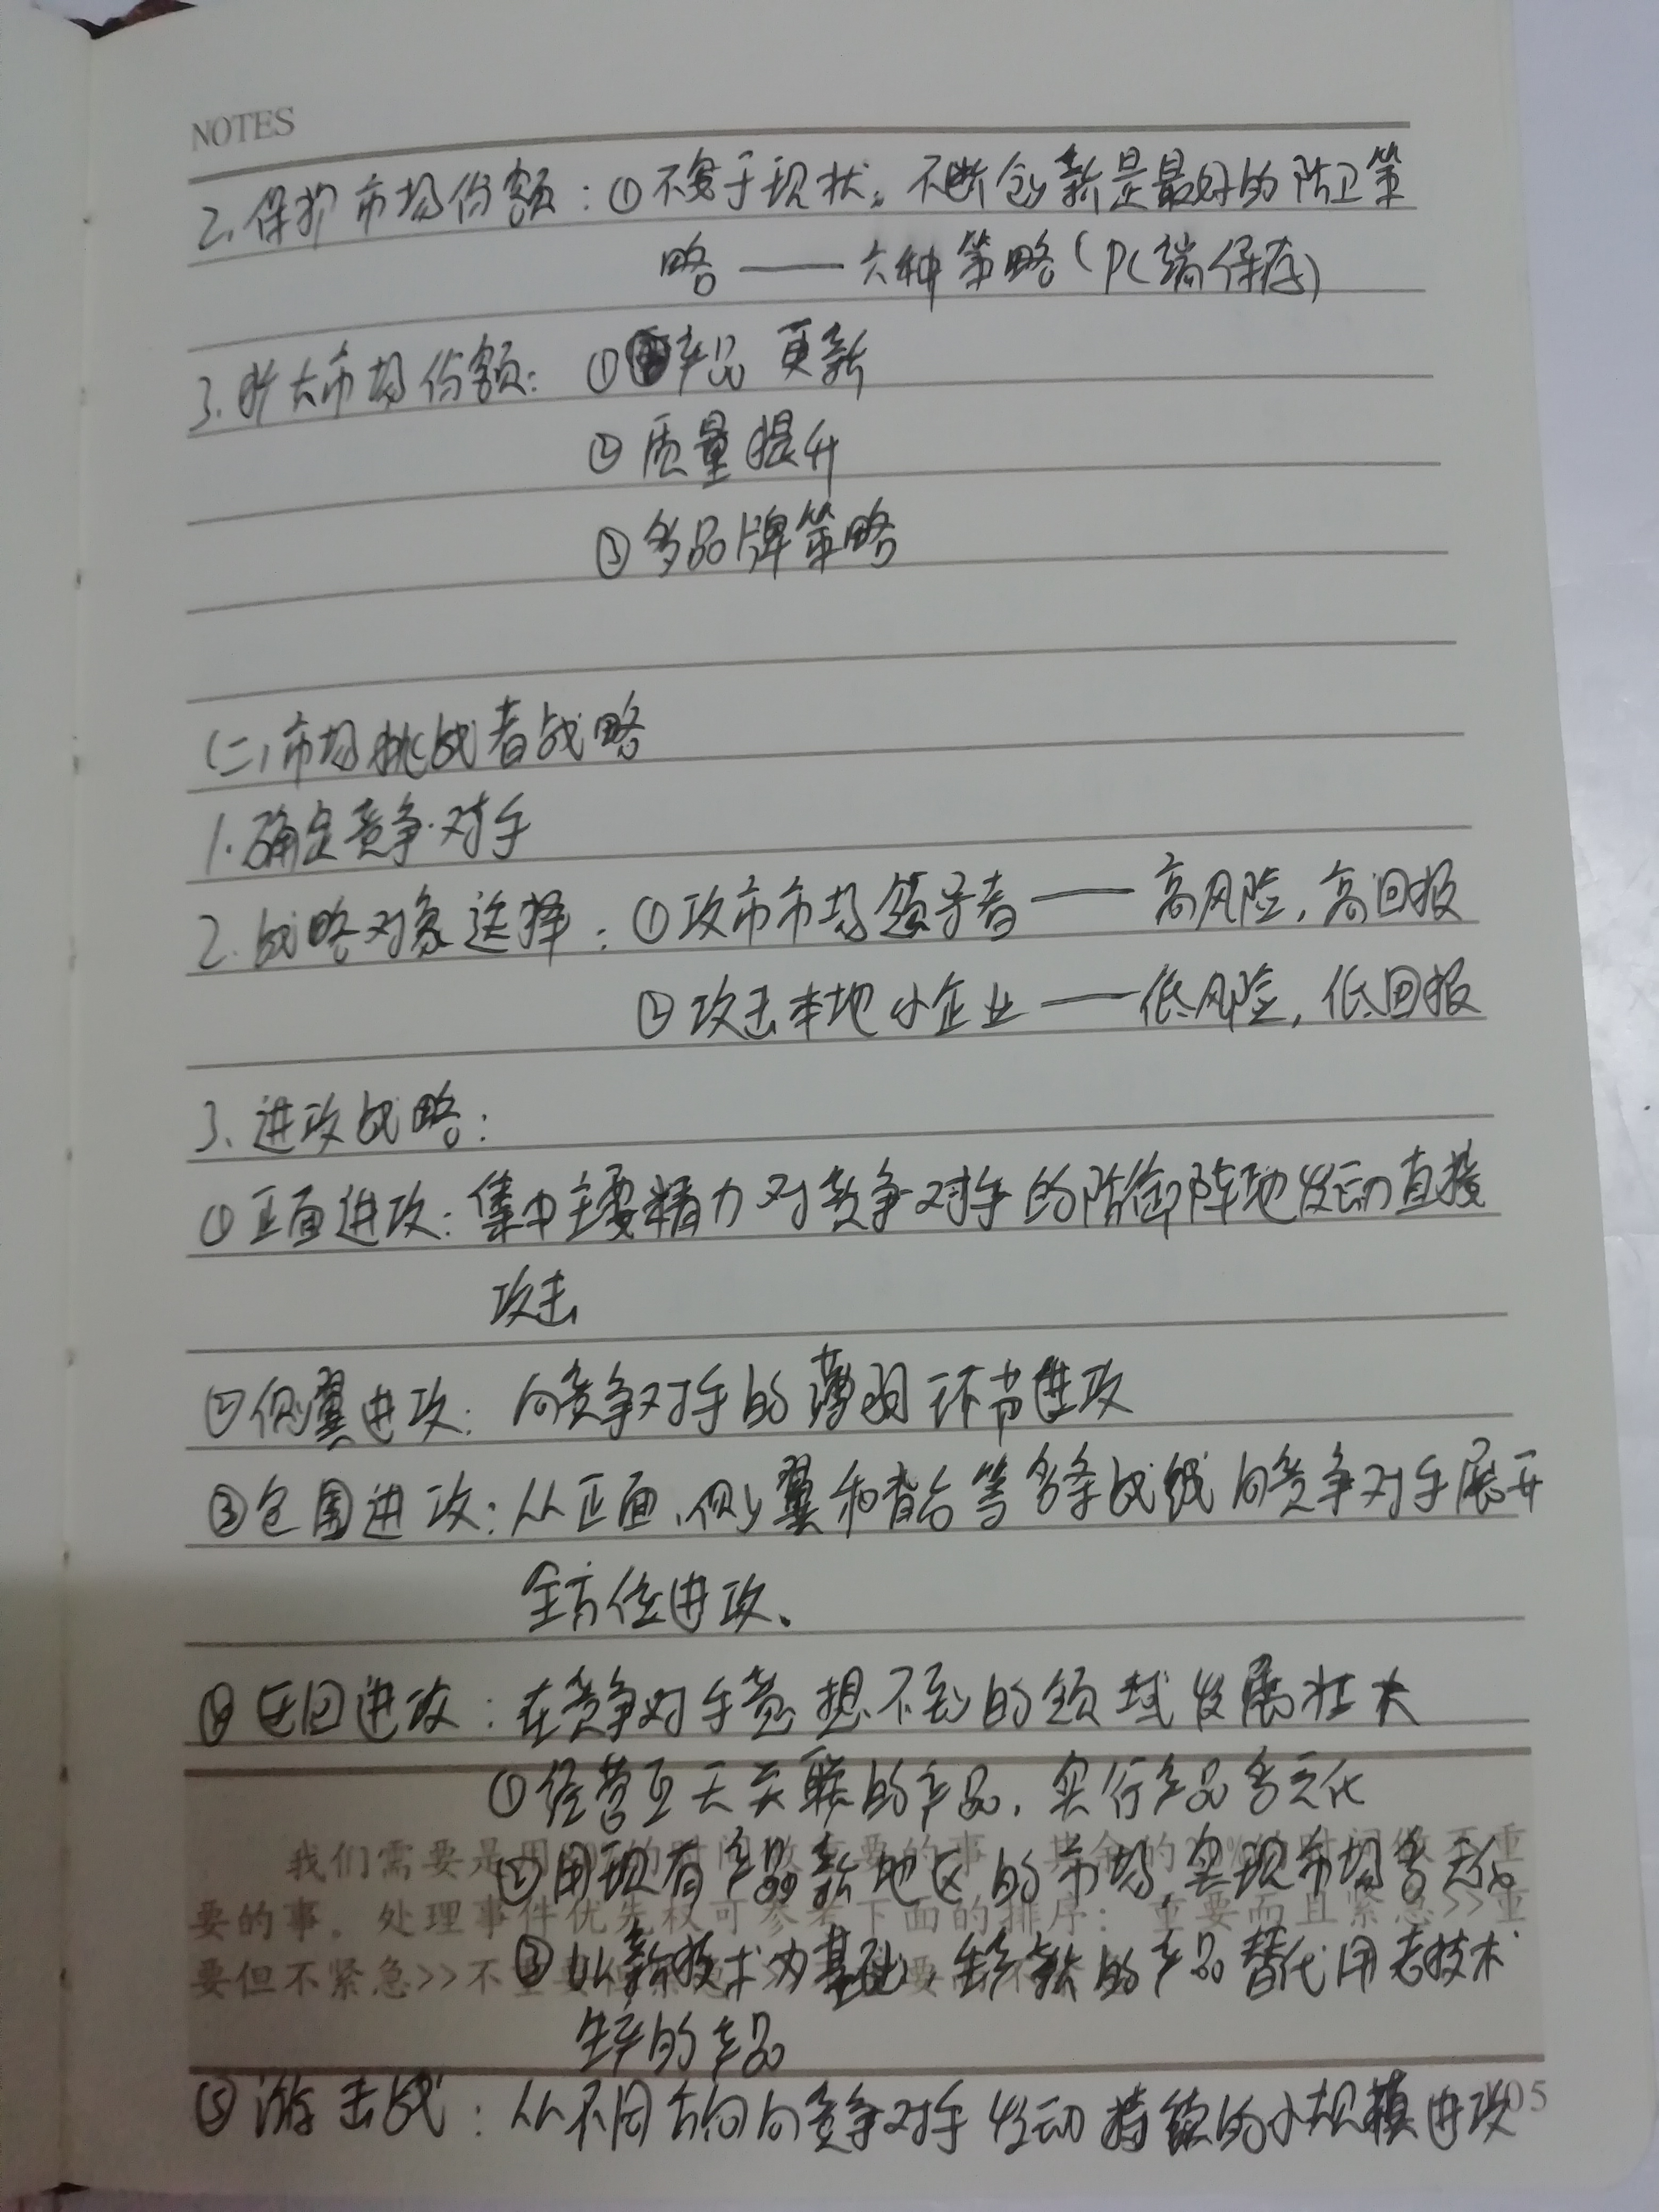 NOTES
2.保护市场份额:①不安于现状。不断创新是最好的防卫策
略——六种策略(PC端保存)
3.扩大市场份额:①产品更新
②质量提升
③多品牌策略
(二)市场挑战者战略
1.确定竞争对手
2.战略对象选择:①攻市市场领导者——高风险,高回报
②攻击本地小企业——低风险,低回报
3、进攻战略:
①正面进攻:集中主要精力对竞争对手的防御阵地发动直接
攻击
②侧翼进攻:向竞争对手的薄弱环节进攻
③包围进攻:从正面、侧翼和背后等多条战线向竞争对手展开
全方位进攻、
④迂回进攻:在竞争对手意想不到的领域发展壮大
①经营互无关联的产品,实行产品多元化
②用现有产品新地区的市场,实现市场多元化
我们需要是用的时间做重要的事 其余的 %的时间做不重
要的事。处理事件优先权可参考下面的排序:重要而且紧急>>重
③以新技术为基础,生产新的产品替代用老技术
要但不紧急>>不重要
生产的产品
05
⑤游击战:从不同方向向竞争对手发动持续的小规模进攻